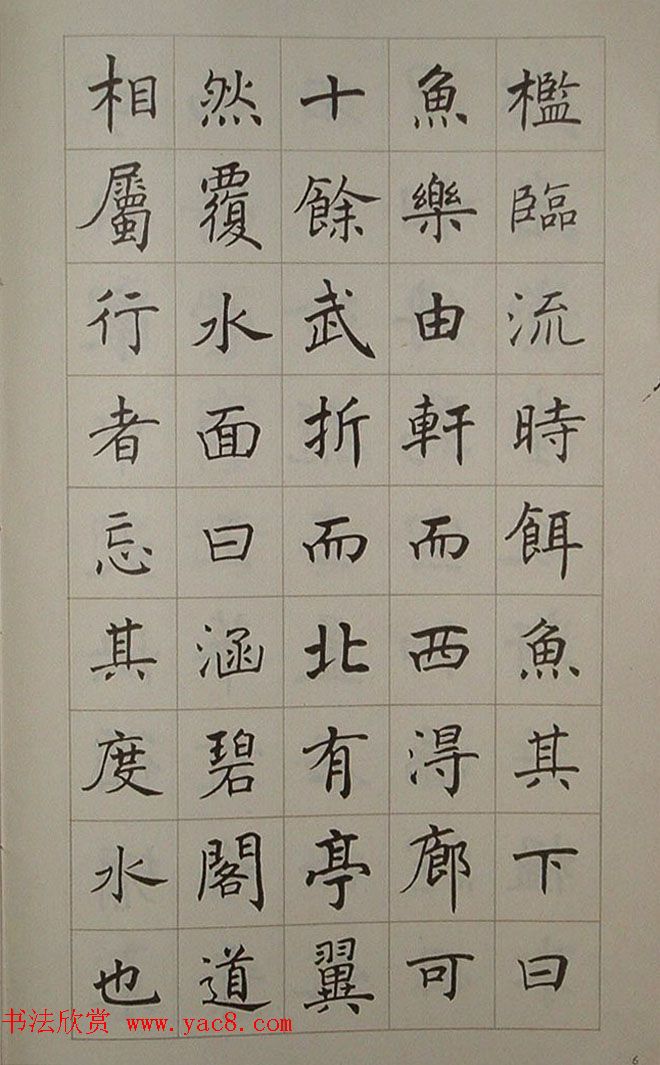 檻臨流時餌魚其下曰
魚樂由軒而西淂廊可
十餘武折而北有亭翼
然覆水面曰涵碧閣道
相屬行者忘其度水也
书法欣赏 www.yac8.com
6